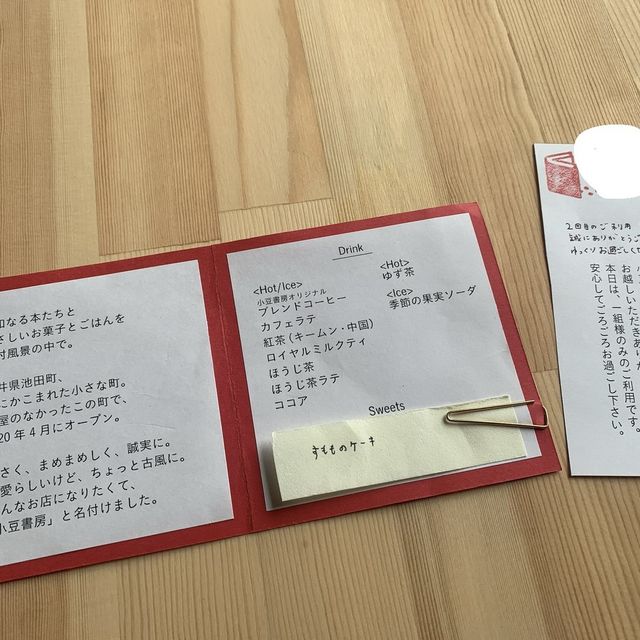 和なる本たちと
さしいお菓子とごはんを
村風景の中で。
井県池田町、
にかこまれた小さな町。
屋のなかったこの町で、
20年4月にオープン。
さく、まめまめしく、誠実に。
愛らしいけど、ちょっと古風に。
んなお店になりたくて、
小豆書房」と名付けました。
Drink
<Hot/Ice>
小豆書房オリジナル
ブレンドコーヒー
カフェラテ
紅茶（キームン・中国）
ロイヤルミルクティ
ほうじ茶
ほうじ茶ラテ
ココア
<Hot>
ゆず茶
<Ice>
季節の果実ソーダ
Sweets
すもものケーキ
2回目のご利用
誠にありがとうご
ゆっくりお過ごしくだ
お越しいただきありが
本日は、一組様のみのご利用です。
安心してごろごろお過ごし下さい。